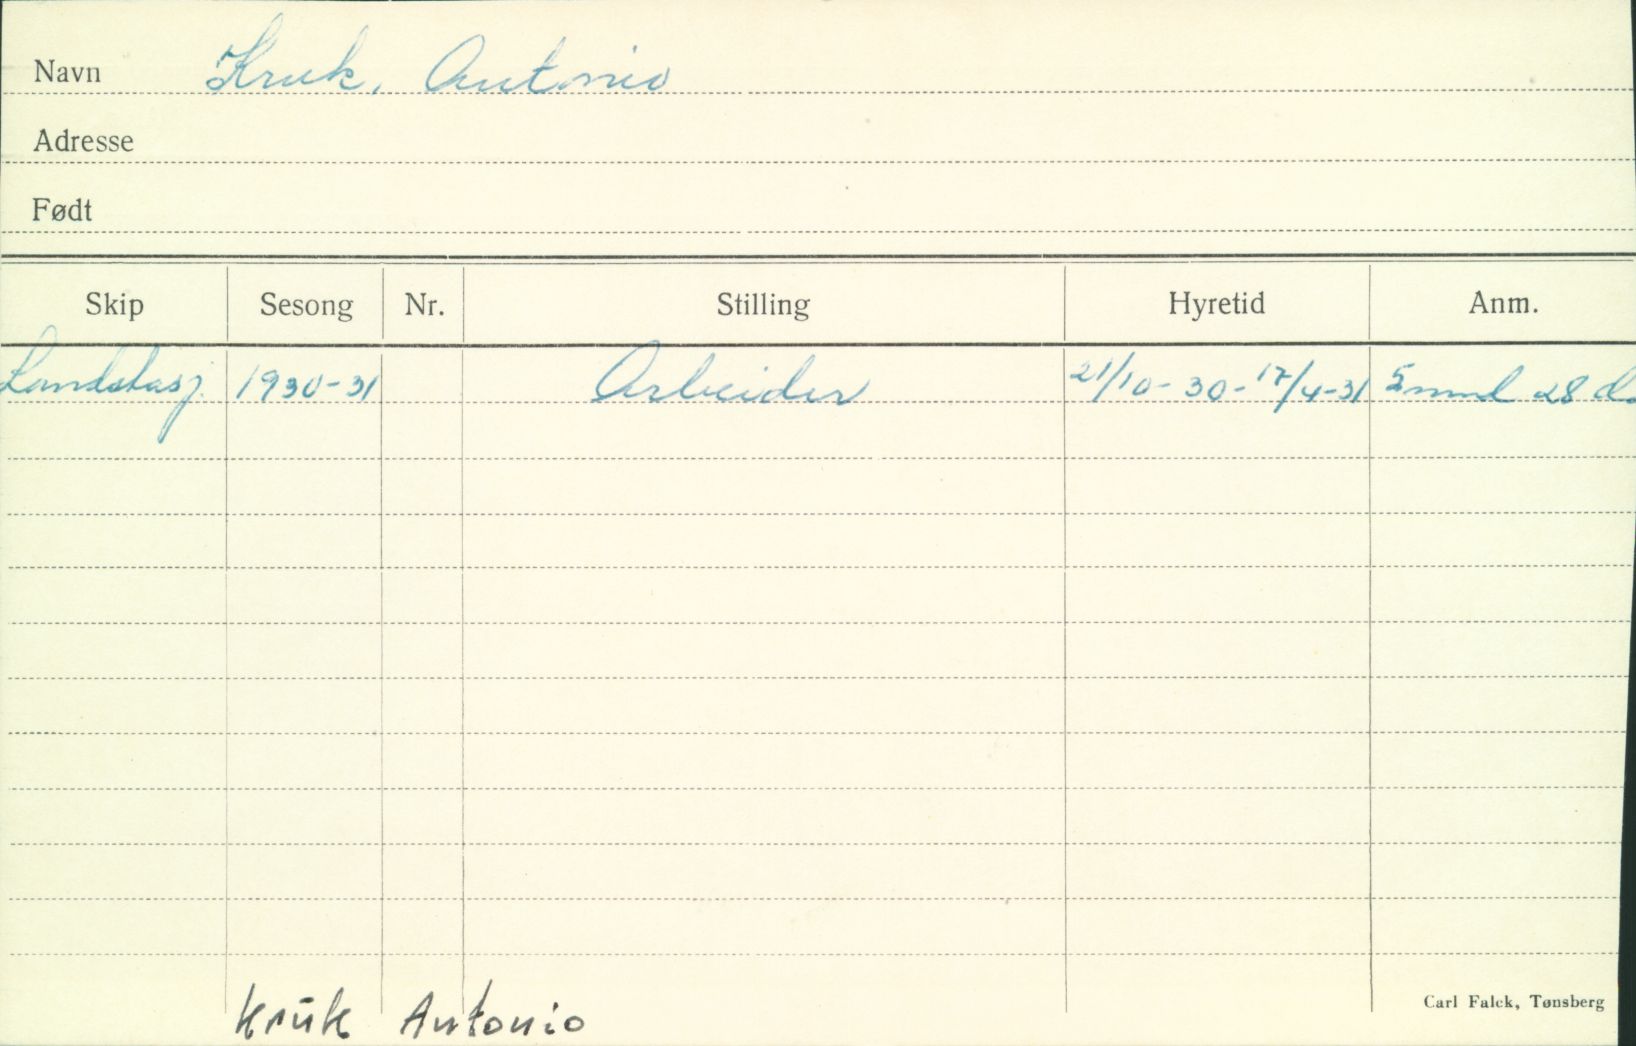 Navn Kruk, Antonio
Adresse
Født
Skip Sesong Nr. Stilling Hyretid Anm.
Landstasj. 1930-31 Arbeider 21/10-30-17/4-31 5 mnd 28 d.
Kruk Antonio
Carl Falck, Tønsberg